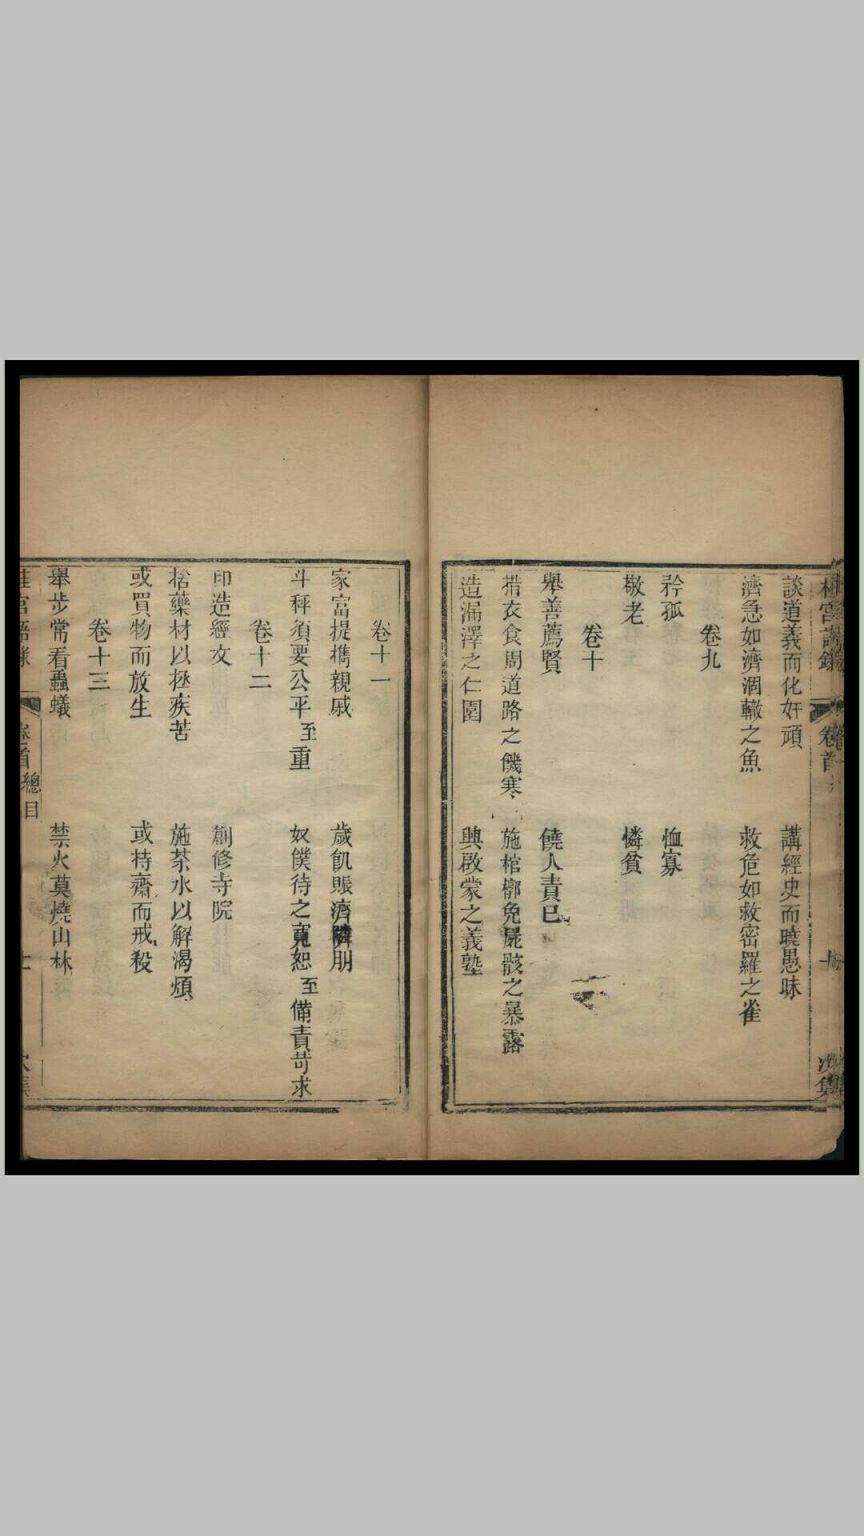 桂宮語錄 卷首 次集
談道義而化奸頑 講經史而曉愚昧
濟急如濟涸轍之魚 救危如救密羅之雀
卷九
矜孤 恤寡
敬老 憐貧
卷十
舉善薦賢 饒人責已
措衣食周道路之饑寒 施棺槨免屍骸之暴露
造漏澤之仁園 興啟蒙之義塾
卷十一
家富提攜親戚 歲飢賬濟隣朋
斗秤須要公平至重 奴僕待之寬恕至備責苛求
卷十二
印造經文 創修寺院
捨藥材以拯疾苦 施茶水以解渴煩
或買物而放生 或持齋而戒殺
卷十三
舉步常看蟲蟻 禁火莫燒山林
桂宮語錄 卷首 總目